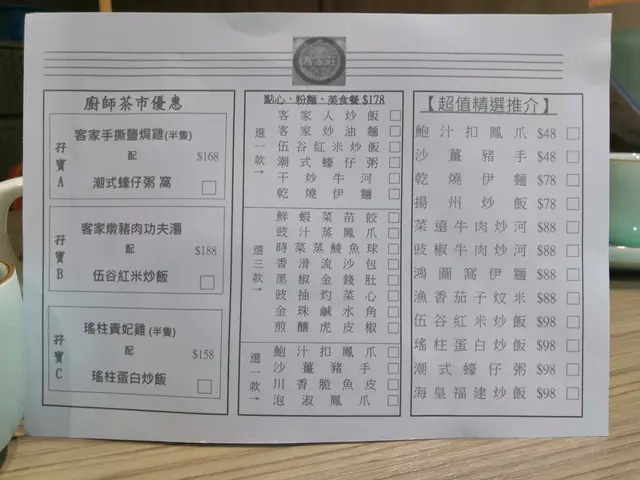 客家莊
廚師茶市優惠
孖寶A
客家手撕鹽焗雞(半隻)
配
$168
潮式蠔仔粥 窩
孖寶B
客家燉豬肉功夫湯
配
$188
伍谷紅米炒飯
孖寶C
瑤柱貴妃雞(半隻)
配
$158
瑤柱蛋白炒飯
點心、粉麵、美食餐 $178
選一款
客家人炒飯
客家炒油麵
伍谷紅米炒飯
潮式蠔仔粥
干炒牛河
乾燒伊麵
選三款
鮮蝦菜苗餃
豉汁蒸鳳爪
時菜蒸鯪魚球
香滑流沙包
黑椒金錢肚
豉抽灼菜心
金珠鹹水角
煎釀虎皮椒
選一款
鮑汁扣鳳爪
沙薑豬手
川香脆魚皮
泡淑鳳爪
【超值精選推介】
鮑汁扣鳳爪 $48
沙薑豬手 $48
乾燒伊麵 $78
揚州炒飯 $78
菜遠牛肉炒河 $88
豉椒牛肉炒河 $88
鴻圖窩伊麵 $88
漁香茄子炆米 $88
伍谷紅米炒飯 $98
瑤柱蛋白炒飯 $98
潮式蠔仔粥 $98
海皇福建炒飯 $98